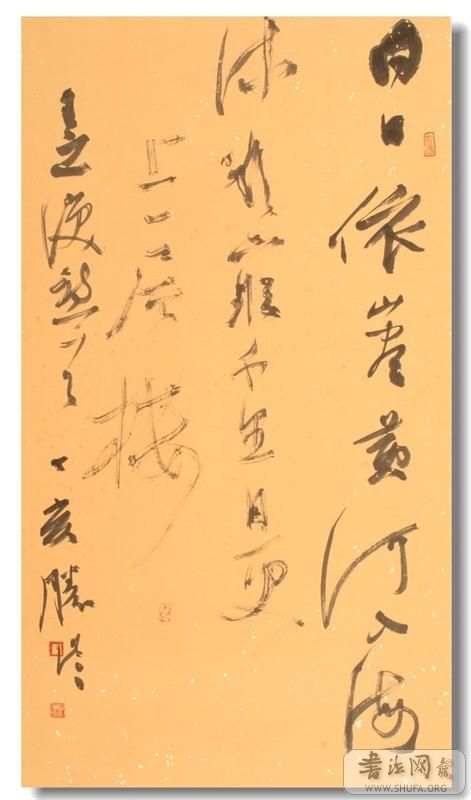 白日依山盡黄河入海
流欲窮千里目更
上一层楼
王之渙
丁亥勝
書法网
WWW.SHUFA.ORG